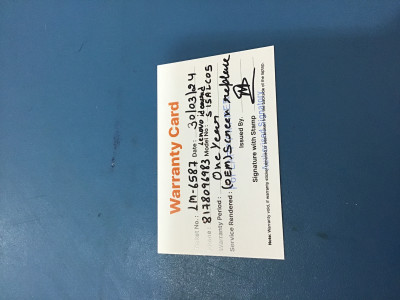 Warranty Card
No.: LM-6587 Date: 30/03/24
8178096983 Model No.: Lenovo ideapad S15ALC05
Warranty Period: One Year
Service Rendered: (OEM) Screen replace
Issued By.
Signature with Stamp
Note: Warranty void, if warranty